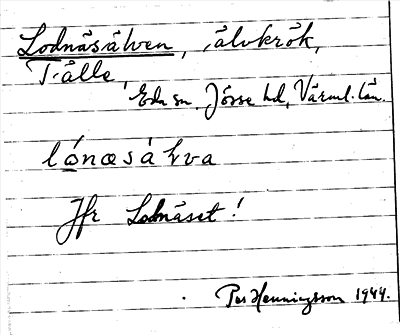 Lodnäsälven, älvkrök,
Tälle,
Eda sn, Jösse hd, Värml. län.
lónœsàlva
Jfr Lodnäset!
Per Henningsson 1944.